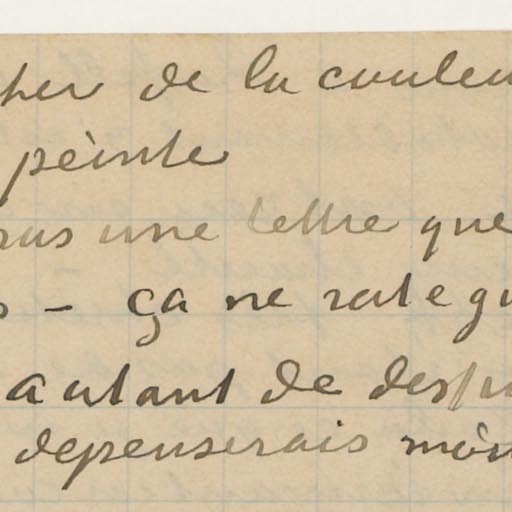 cher de la couleu
peinte
ous une lettre que
s – ça ne rate gu
autant de desp
depenserais moin